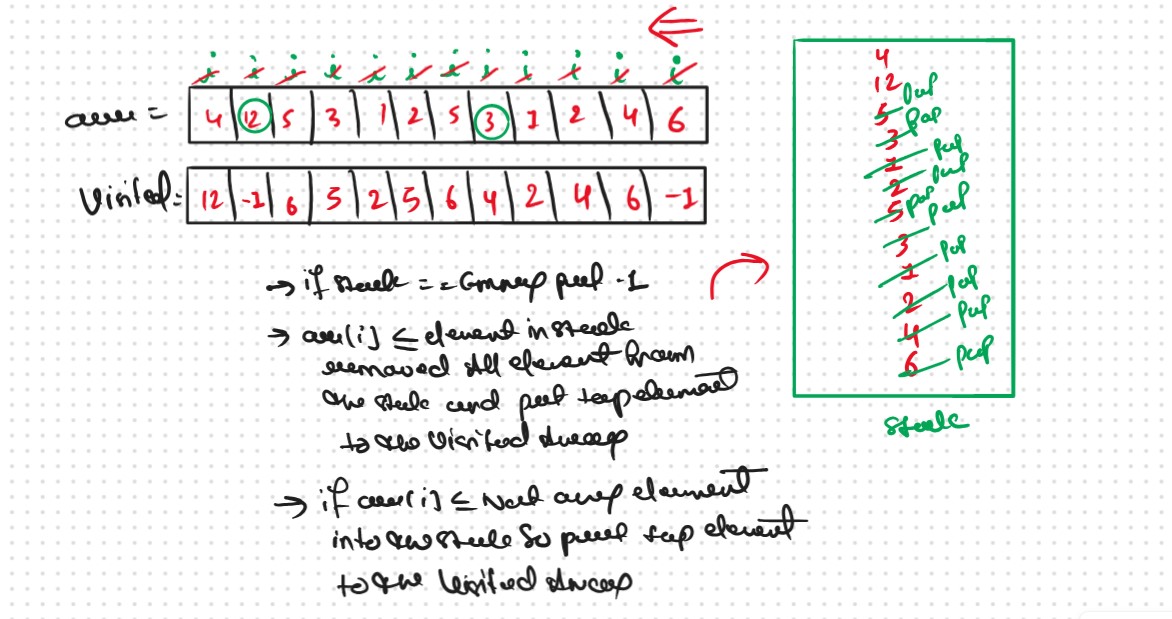 i i i i i i i i i i i i
arr = 4 12 5 3 1 2 5 3 1 2 4 6
Visited = 12 -1 6 5 2 5 6 4 2 4 6 -1
→ if stack == Empty put -1
→ arr[i] ≤ element in stack
removed all element from
the stack and put top element
to the visited array
→ if arr[i] ≤ Not any element
into the stack so put top element
to the visited array
4
12
5 pop
3 pop
1 pop
2 pop
5 pop pop
3
1 pop
2 pop
4 pop
6 pop
stack